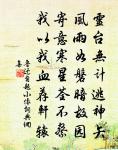 靈台無計逃神矢
風雨如磐暗故園
寄意寒星荃不察
我以我血薦軒轅
自題小像詞典網